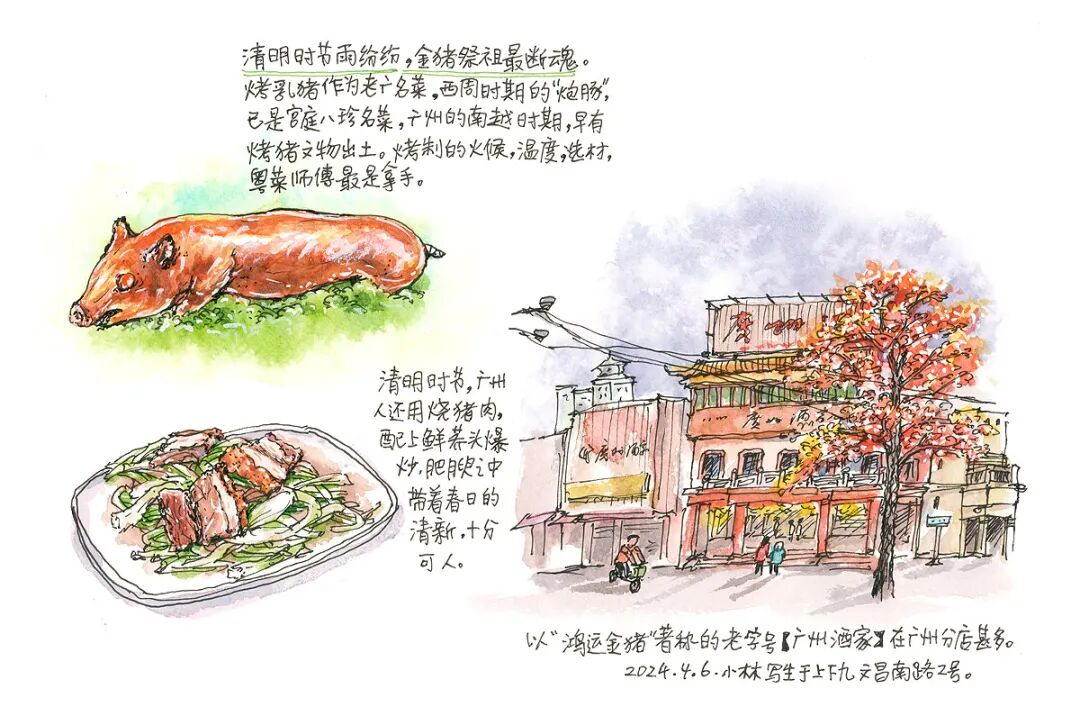 清明时节雨纷纷，金猪祭祖最断魂。
烤乳猪作为老广名菜，西周时期的“炮豚”，
已是宫庭八珍名菜，广州的南越时期，早有
烤猪文物出土。烤制的火候，温度，选材，
粤菜师傅最是拿手。
清明时节，广州
人还用烧猪肉，
配上鲜荞头爆
炒，肥腴之中
带着春日的
清新，十分
可人。
广州酒家
以“鸿运金猪”著称的老字号【广州酒家】在广州分店甚多。
2024.4.6.小林写生于上下九文昌南路2号。